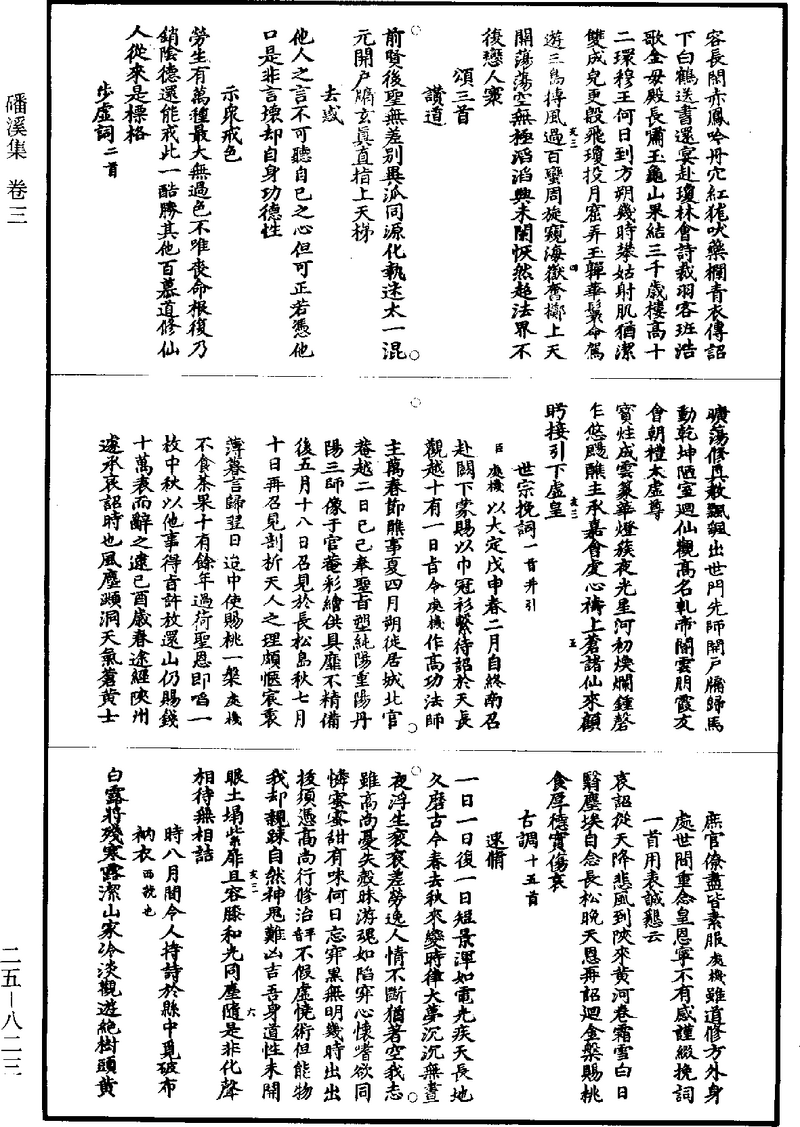 磻溪集　卷三
容長閣赤鳳吟丹穴紅狵吠藥欄青衣傳詔
下白鶴送書還宴赴瓊林會詩裁羽客班浩
歌金母殿長嘯玉龜山果結三千歲樓高十
二環穆王何日到方朔幾時攀姑射肌猶潔
雙成皃更殷飛瓊投月窟弄玉嚲華鬟命駕
遊三島摶風過百蠻周旋窺海嶽奮擲上天
關蕩蕩空無極滔滔興未闌恢然超法界不
後戀人寰
頌三首
讚道
前賢後聖無差別異派同源化執迷太一混
元開戶牖玄真直指上天梯
去惑
他人之言不可聽自己之心但可正若憑他
口是非言壞却自身功德性
示衆戒色
勞生有萬種最大無過色不唯喪命根復乃
銷陰德還能戒此一酷勝其他百慕道修仙
人從來是標格
步虛詞二首
曠蕩修真教飄颻出世門先師開戶牖歸馬
動乾坤陋室迴仙觀高名軋帝閽雲朋霞友
會朝禮太虛尊
寶炷成雲篆華燈簇夜光星河初煥爛鍾磬
乍悠颺醮主承嘉會虔心禱上蒼諸仙來顧
眄接引下虛皇
世宗挽詞一首并引
臣處機以大定戊申春二月自終南召
赴闕下蒙賜以巾冠衫繫待詔於天長
觀越十有一日旨令處機作高功法師
主萬春節醮事夏四月朔徙居城北官
菴越二日己巳奉聖旨塑純陽重陽丹
陽三師像于官菴彩繪供具靡不精備
後五月十八日召見於長松島秋七月
十日再召見剖析天人之理頗愜宸衷
薄暮言歸翌日遣中使賜桃一槃處機
不食茶果十有餘年過荷聖恩即啗一
枚中秋以他事得旨許放還山仍賜錢
十萬表而辭之逮己酉歲春途經陝州
遽承哀詔時也風塵澒洞天氣蒼黃士
庶官僚盡皆素服處機雖道修方外身
處世間重念皇恩寧不有感謹綴挽詞
一首用表誠懇云
哀詔從天降悲風到陝來黃河卷霜雪白日
翳塵埃自念長松晚天恩再詔迴金槃賜桃
食厚德實傷哀
古調十五首
速脩
一日一日復一日短景渾如電光疾天長地
久磨古今春去秋來變時律大夢沉沉無晝
夜浮生衮衮差勞逸人情不斷猶著空我志
雖高尚憂失殷昧游魂如陷穽心懷嗜欲同
憐蜜蜜甜有味何日忘穽黑無明幾時出出
後須憑高尚行修治詎不假虛憢術但能物
我却親踈自然神鬼難凶吉吾身道性未開
眼土塌紫扉且容膝和光同塵隨是非化聲
相待無相詰
時八月間令人持詩於縣中覓破布
衲衣西虢也
白露將殘寒露潔山家冷淡觀遊絶樹頭黃
二五—八二三